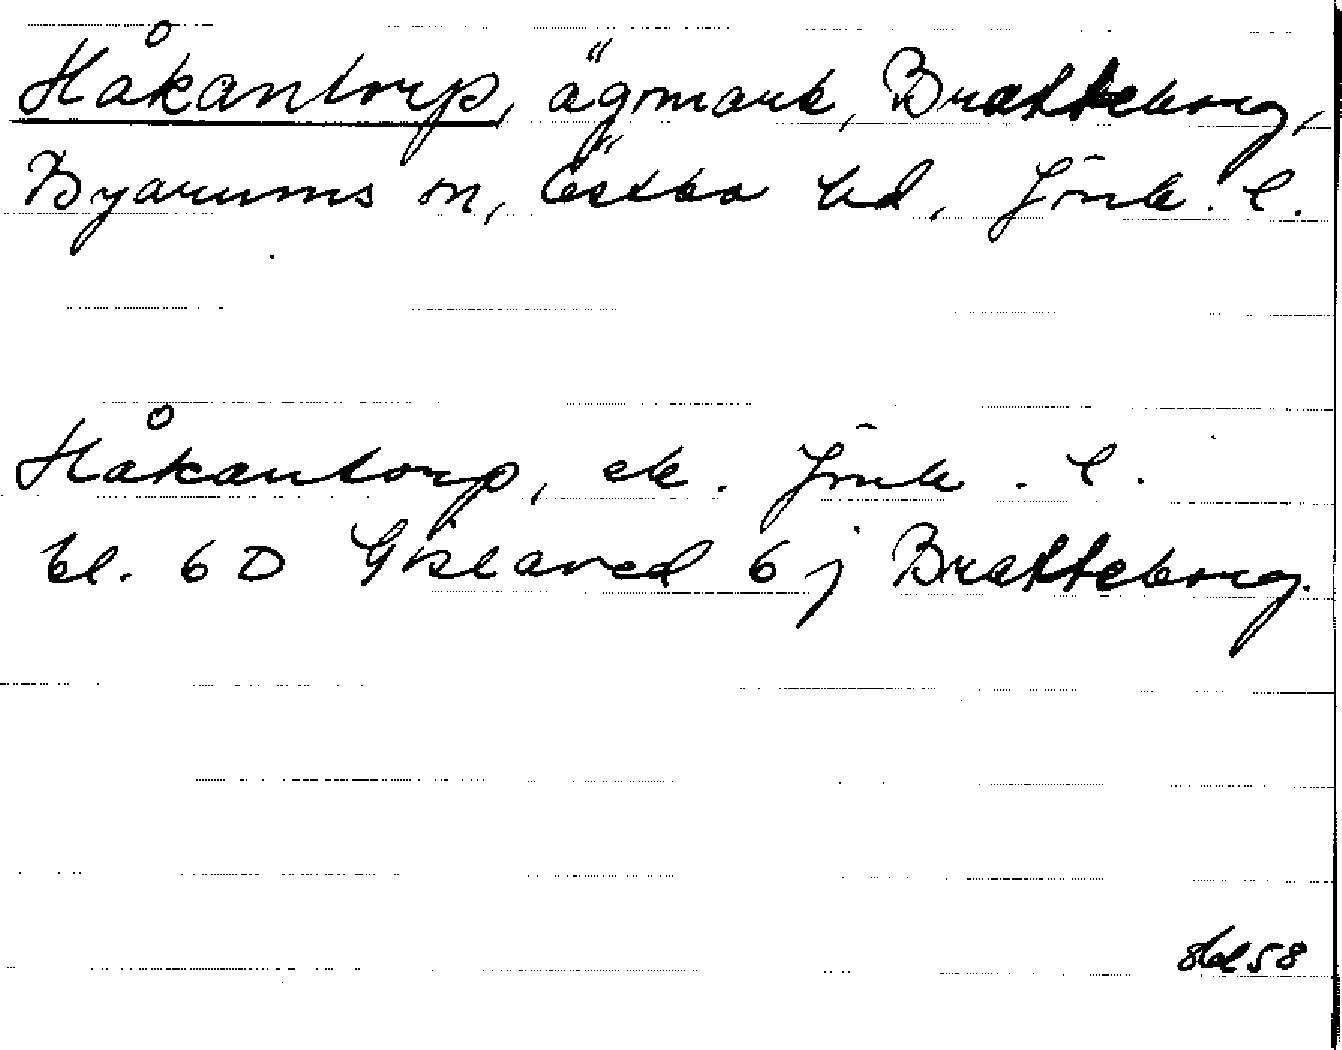 Håkantorp, ägomark, Bratteborg,
Byarums sn, Östbo hd, Jönk. l.
Håkantorp, ek. Jönk. l.
bl. 6 D Gislaved 6 j Bratteborg.
58